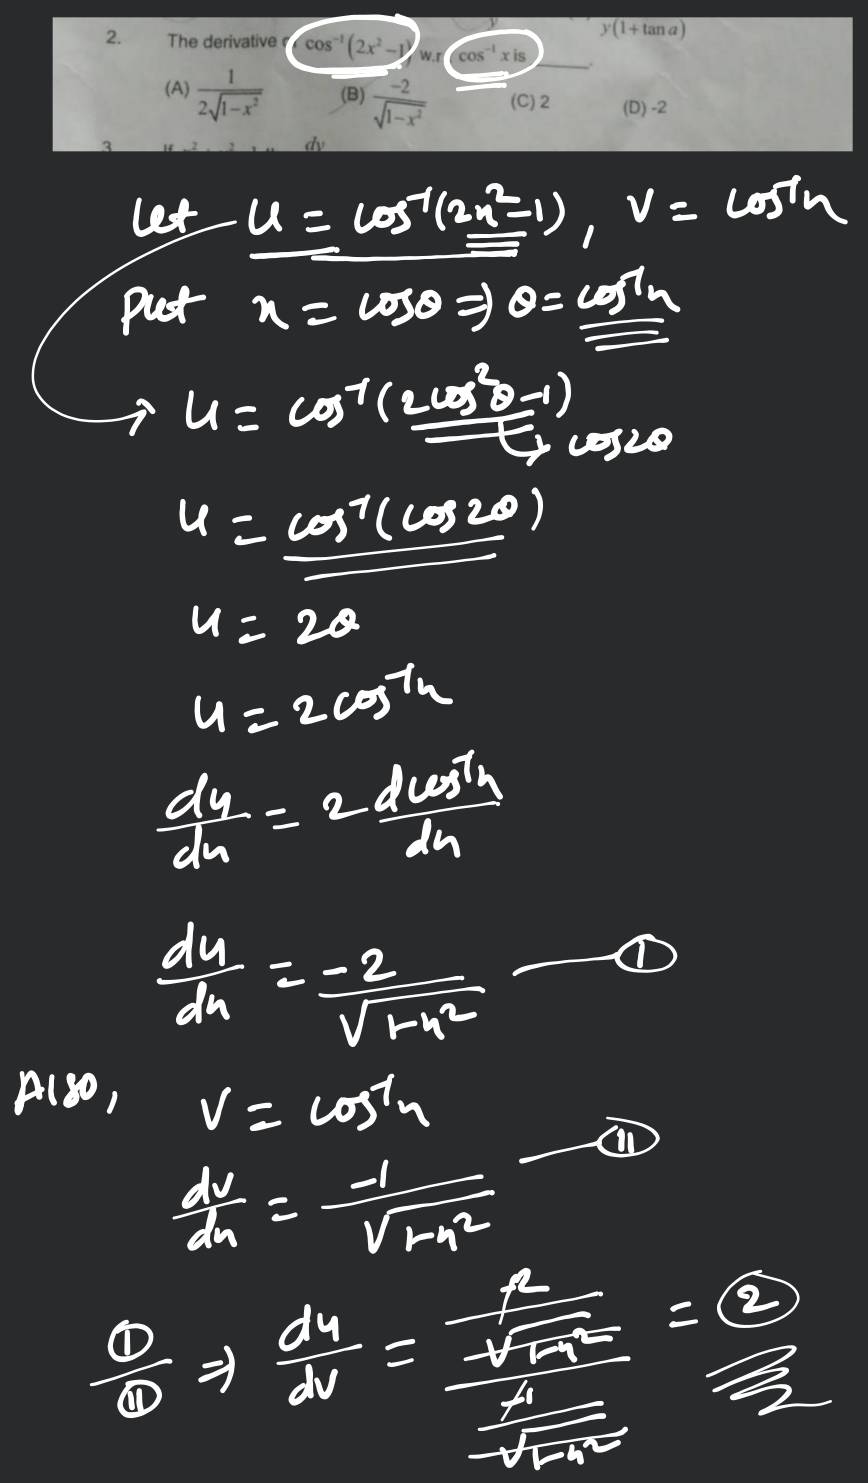 y(1+tan a)
2. The derivative of cos⁻¹(2x²−1) w.r cos⁻¹ x is ____.
(A) 1/(2√(1−x²)) (B) −2/√(1−x²) (C) 2 (D) -2
3 dy
Let u = cos⁻¹(2x²−1), v = cos⁻¹x
Put x = cosθ ⇒ θ = cos⁻¹x
u = cos⁻¹(2cos²θ−1)
cos2θ
u = cos⁻¹(cos2θ)
u = 2θ
u = 2cos⁻¹x
du/dx = 2 dcos⁻¹x/dx
du/dx = −2/√(1−x²) — I
Also, v = cos⁻¹x
dv/dx = −1/√(1−x²) — II
I/II ⇒ du/dv = (−2/√(1−x²))/(−1/√(1−x²)) = 2